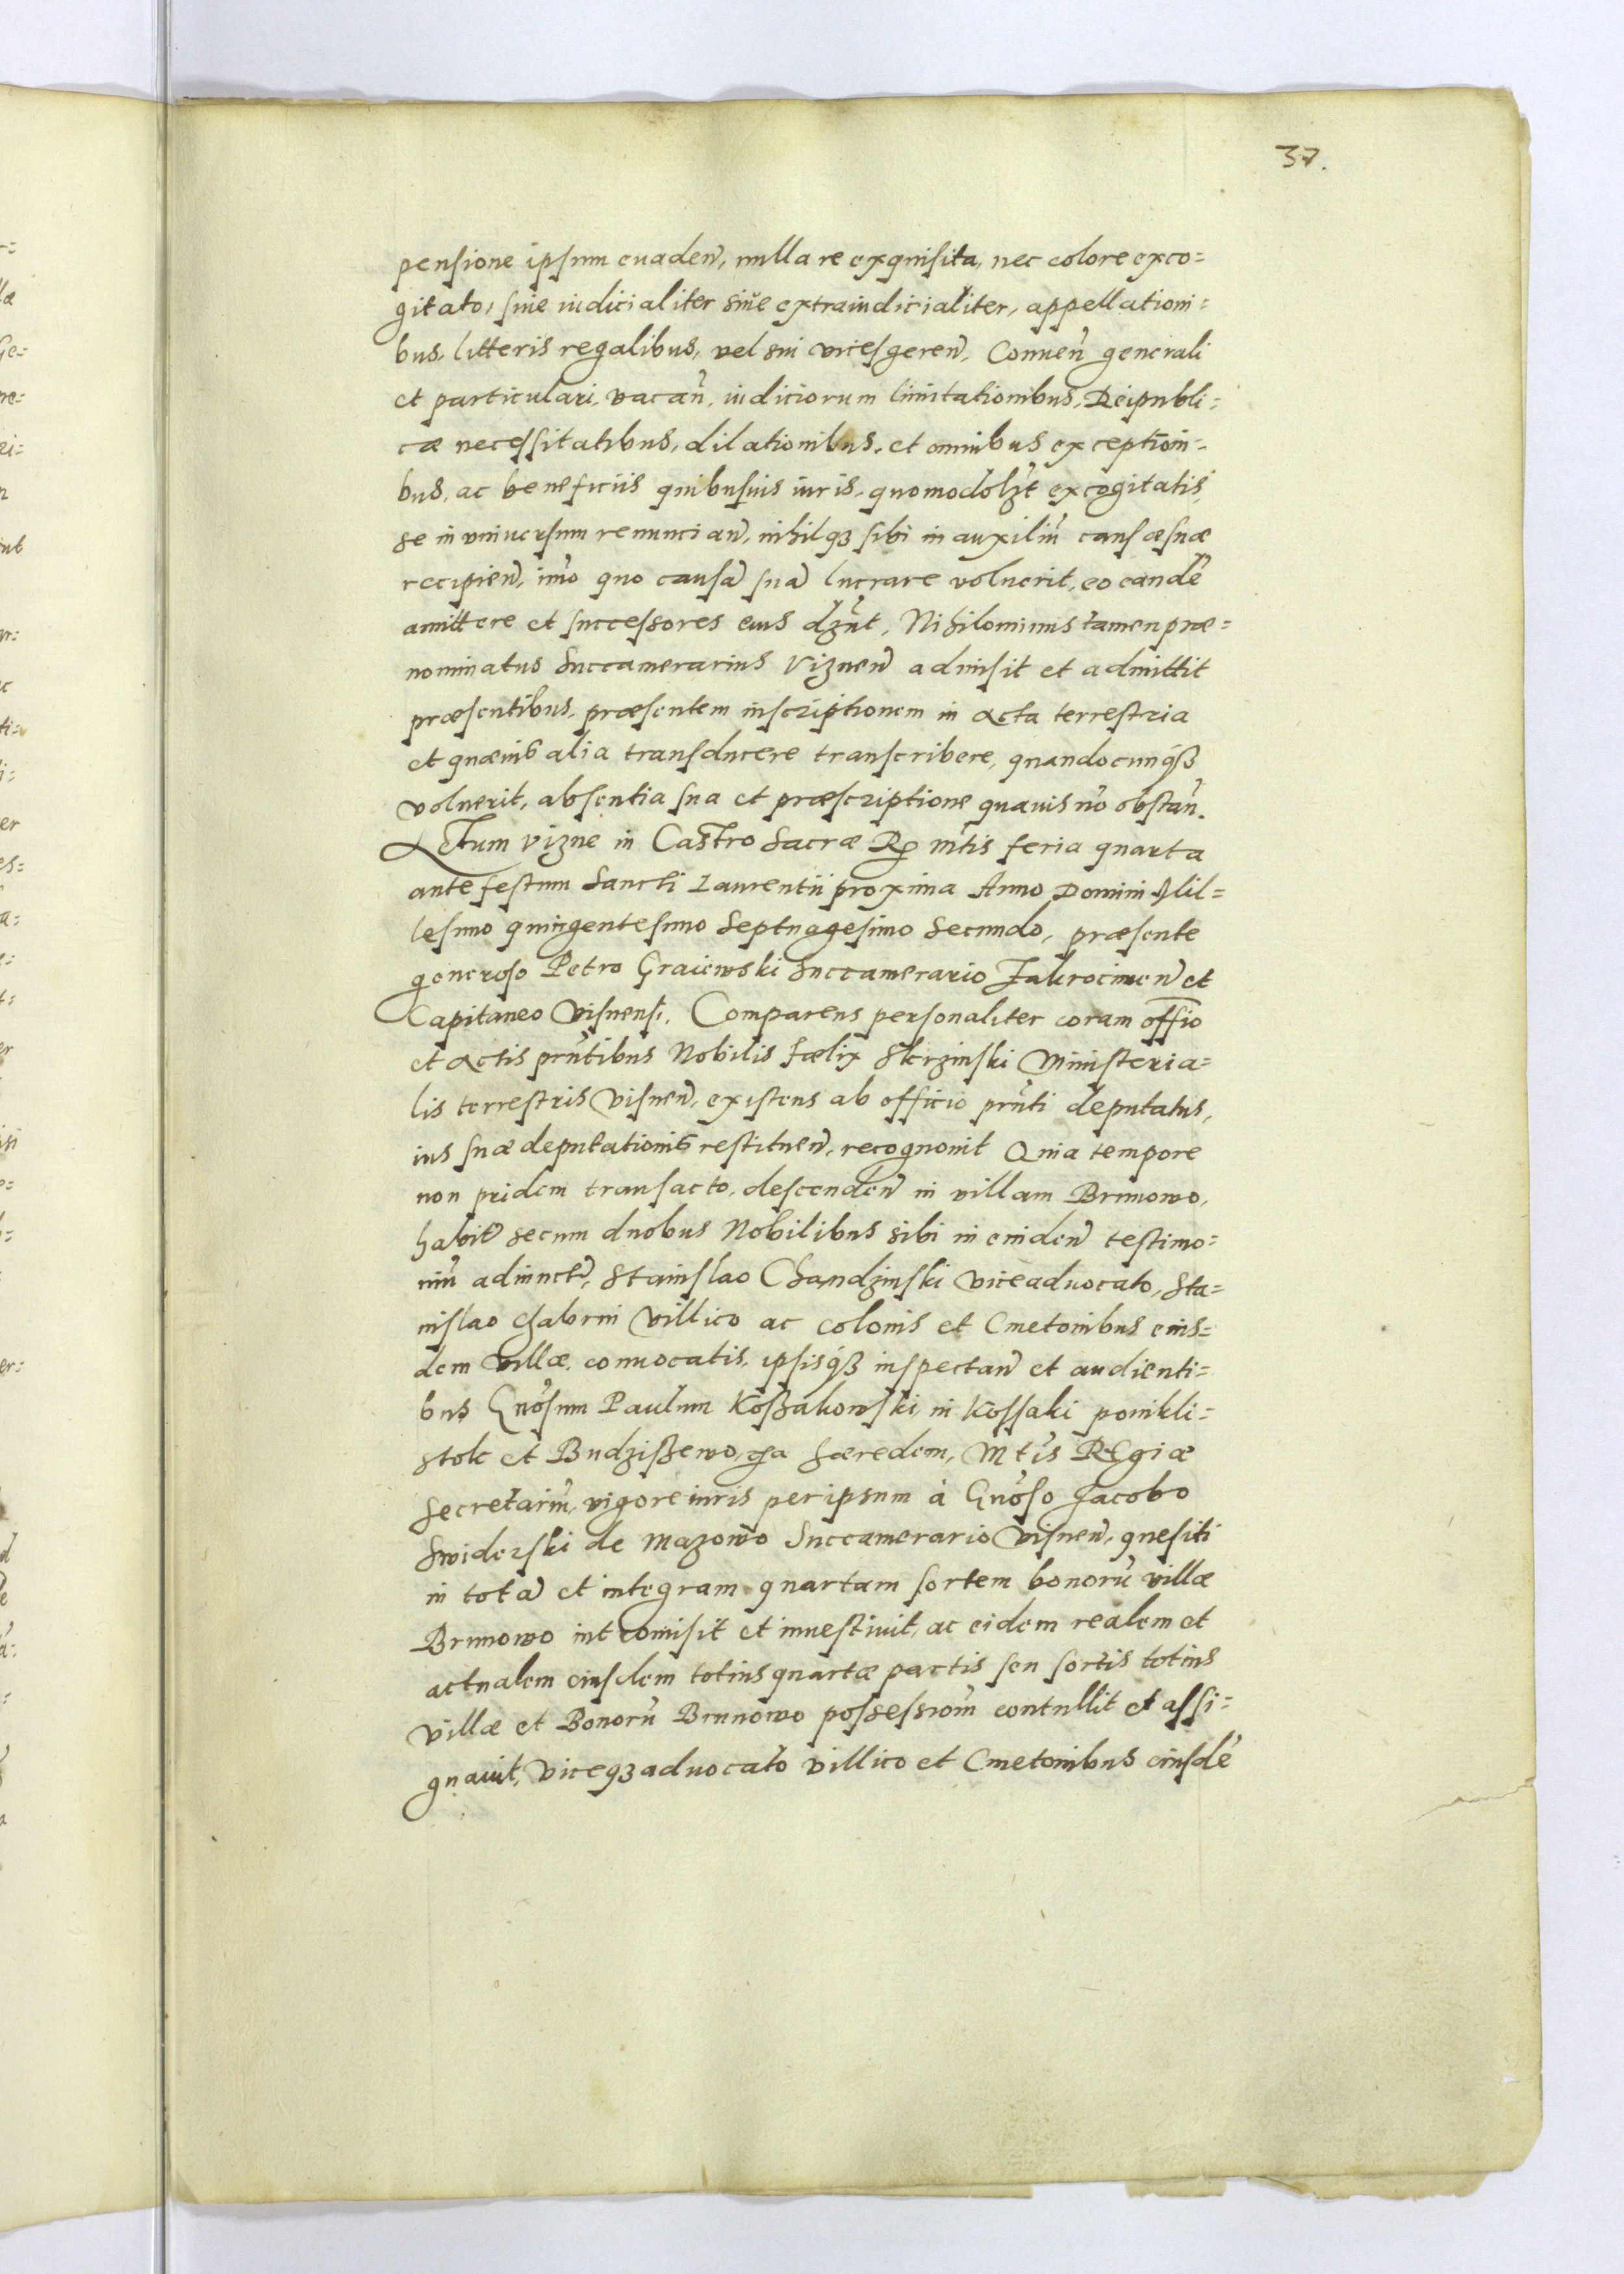 37.
pensione ipsum euadeñ, nulla re exquisita, nec colore exco=
gitato, siue iudicialiter siue extraiudicialiter, appellationi=
bus, litteris regalibus, vel sui vicesgereñ, Conueñ generali
et particulari, vacañ, iudiciorum limitationibus, Reipubli=
cæ necessitatibus, dilationibus, et omnibus exception=
bus, ac beneficiis quibusuis iuris, quomodolzt excogitatis,
se in vniuersum renuncian̄, nihilqz sibi in auxiliū causæ suæ
recipien̄, imo quo causā suā lucrare voluerit, eo eandē
amittere et successores eius dzn̄t, Nihilominus tamen præ=
nominatus Succamerarius Viznen̄ admisit et admittit
præsentibus, præsentem inscriptionem in Acta terrestria
et quæuis alia transducere transcribere, quandocunqß
voluerit, absentia sua et præscriptione quauis nō obstan̄.
Actum Vizne in Castro Sacræ Rę mtis feria quarta
ante festum Sancti Laurentii proxima Anno Domini Mil=
lesimo quingentesimo Septuagesimo Secundo, præsente
generoso Petro Graiewski Succamerario Zakrocimen̄ et
Capitaneo Visnensi. Comparens personaliter coram offio
et Actis prn̄tibus Nobilis Fælix Skrzinski Ministeria=
lis terrestris Visnen̄, existens ab officio prn̄ti deputatus,
ius suæ deputationis restituen̄, recognouit Quia tempore
non pridem transacto, descenden̄ in villam Brunowo,
habit̄ secum duobus Nobilibus sibi in euiden̄ testimo=
niū adiunct̄, Stanislao Chandzinski viceaduocato, Sta=
nislao Gabrin Villico ac colonis et Cmetonibus eius=
dem villæ, conuocatis, ipsisqß inspectan̄ et audienti=
bus Gn̄osum Paulum Koßakowski, in Kossaki ponikli=
stok et Budzißewo, hæredem, Mtis REgiæ
Secretariū, vigore iuris per ipsum à Gn̄oso Jacobo
Swiderski de Mazowo Succamerario Visnen̄, quesiti
in totā et integram quartam sortem bonorū villæ
Brunowo intromisit et inuestiuit, ac eidem realem et
actualem eiusdem totius quartæ partis seu sortis totius
villæ et Bonorū Brunowo possessionē contullit et assi=
gnauit, Viceqz aduocato villico et Cmetonibus eiusdē